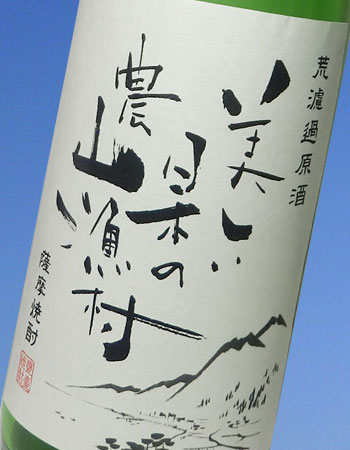 荒濾過原酒
美しい
日本の
農山漁村
薩摩焼酎